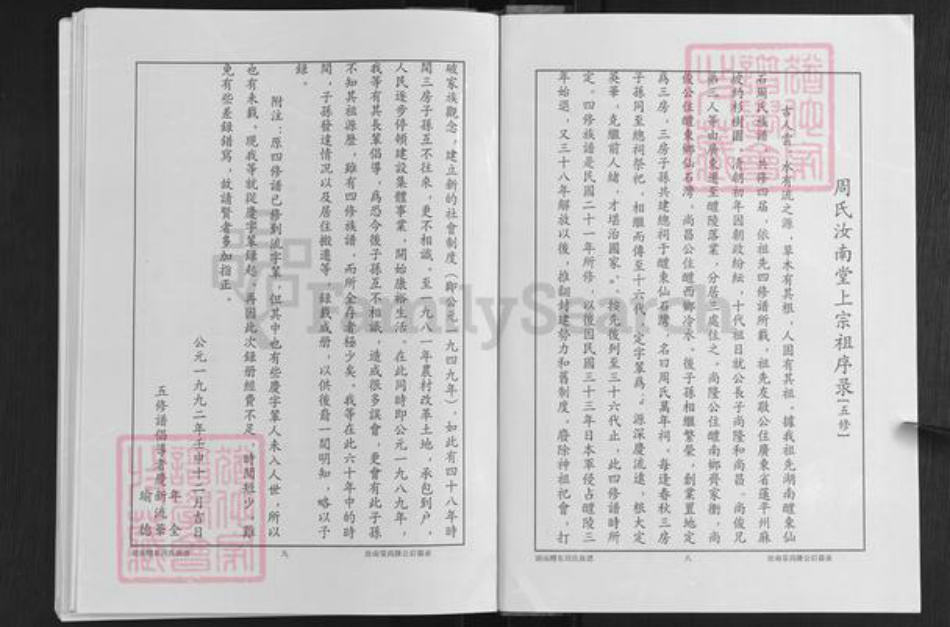 周氏汝南堂上宗祖序录[五修]
古人云：水有流之源，草木有其根，人固有其祖。據我祖先湖南醴東仙
石周氏族譜，共修四届，依祖先四修譜所載，祖先友敬公住廣東省蓮平州麻
坡約杉樹園，清朝初年因朝政紛紜，十代祖日就公長子尚隆和尚昌。尚俊兄
弟三人等由廣東遷至醴陵落業，分居三處住之。尚隆公住醴南鄉齊家衝，尚
俊公住醴東鄉仙石灣，尚昌公住醴西鄉冷水。後子孫相繼繁榮，創業置地定
爲三房，三房子孫共建總祠于醴東仙石灣，名曰周氏萬年祠。每逢春秋三房
子孫同至總祠祭祀，相繼而傳至十六代，定字輩爲：源深慶流遠，根大定
英華，克繼前人緒，才堪治國家。按先後列至三十六代止，此四修譜時所
定。四修族譜是民國二十一年所修，以後因民國三十三年日本軍侵占醴陵三
年始退，又三十八年解放以後，推翻封建勢力和舊制度，廢除神祖祀會，打
八
破家族觀念，建立新的社會制度（即公元一九四九年），如此有四十八年時
間三房子孫互不往來，更不相識。至一九八一年農村改革土地，承包到户，
人民逐步停頓建設集體事業，開始康裕生活。在此同時即公元一九八九年，
我等有其長輩倡導，爲恐今後子孫互不相識，造成很多誤會，更會有此子孫
不知其祖源歷，雖有四修族譜，而所全存者極少矣。我等在此六十年中的時
間，子孫發達情况以及居住搬遷等，錄載成册，以供後裔一閱明知，略以予
錄。
附注：原四修譜已修到流字輩，但其中也有些慶字輩人未入人世，所以
也有未載，現我等就從慶字輩錄起，再因此次錄册經費不足，時間短少，難
免有些差錄錯寫，故請賢者多加指正。
公元一九九二年壬申十二月吉日
五修譜倡導者慶新流
年金
瑜德
九
FamilySearch